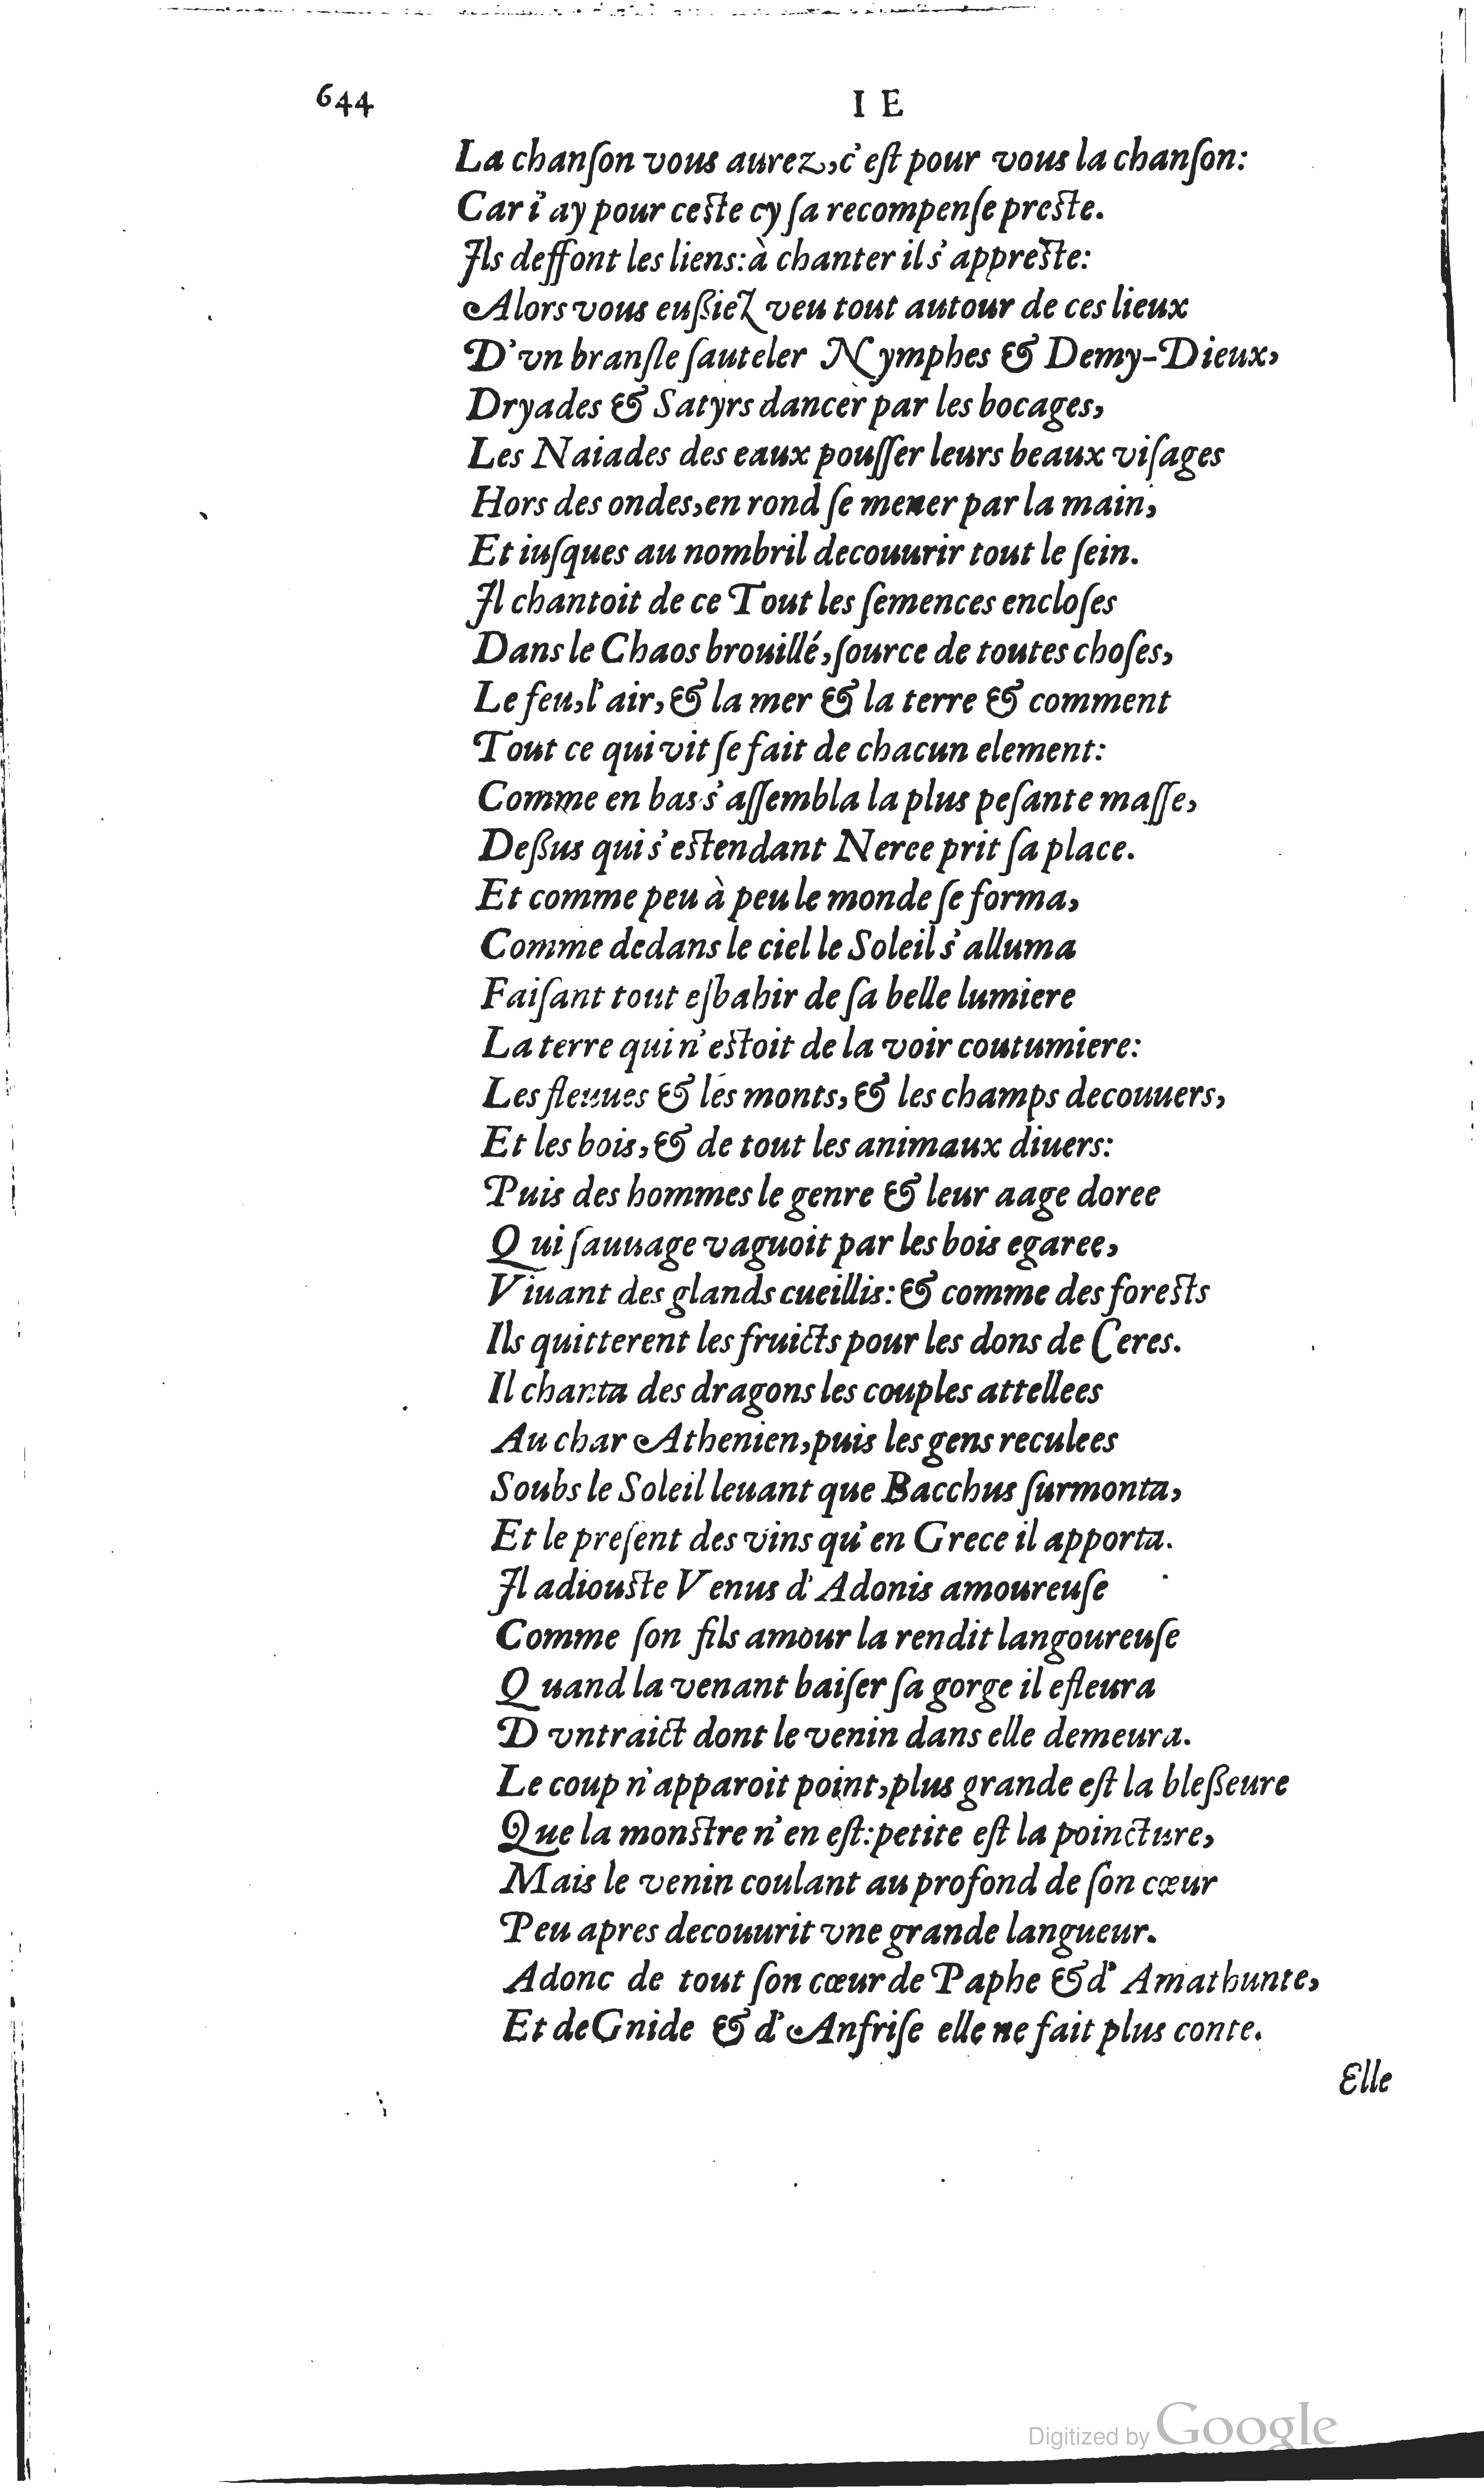 644 I E
La chanſon vous aurez, c'eſt pour vous la chanſon:
Car i'ay pour ceſte cy ſa recompenſe preſte.
Ils deffont les liens: à chanter il s'appreſte:
Alors vous eußiez veu tout autour de ces lieux
D'vn branſle ſauteler Nymphes & Demy-Dieux,
Dryades & Satyrs dancer par les bocages,
Les Naiades des eaux pouſſer leurs beaux viſages
Hors des ondes, en rond ſe mener par la main,
Et iuſques au nombril decouurir tout le ſein.
Il chantoit de ce Tout les ſemences encloſes
Dans le Chaos brouillé, ſource de toutes choſes,
Le feu, l'air, & la mer & la terre & comment
Tout ce qui vit ſe fait de chacun element:
Comme en bas s'aſſembla la plus peſante maſſe,
Deßus qui s'eſtendant Neree prit ſa place.
Et comme peu à peu le monde ſe forma,
Comme dedans le ciel le Soleil s'alluma
Faiſant tout eſbahir de ſa belle lumiere
La terre qui n'eſtoit de la voir coutumiere:
Les fleuues & les monts, & les champs decouuers,
Et les bois, & de tout les animaux diuers:
Puis des hommes le genre & leur aage doree
Qui ſauuage vaguoit par les bois egaree,
Viuant des glands cueillis: & comme des foreſts
Ils quitterent les fruicts pour les dons de Ceres.
Il chanta des dragons les couples attellees
Au char Athenien, puis les gens reculees
Soubs le Soleil leuant que Bacchus ſurmonta,
Et le preſent des vins qu'en Grece il apporta.
Il adiouſte Venus d'Adonis amoureuſe
Comme ſon fils amour la rendit langoureuſe
Quand la venant baiſer ſa gorge il efleura
D vntraict dont le venin dans elle demeura.
Le coup n'apparoit point, plus grande eſt la bleßeure
Que la monſtre n'en eſt: petite eſt la poincture,
Mais le venin coulant au profond de ſon cœur
Peu apres decouurit vne grande langueur.
Adonc de tout ſon cœur de Paphe & d'Amathunte,
Et de Gnide & d'Anfriſe elle ne fait plus conte.
Elle
Digitized by Google